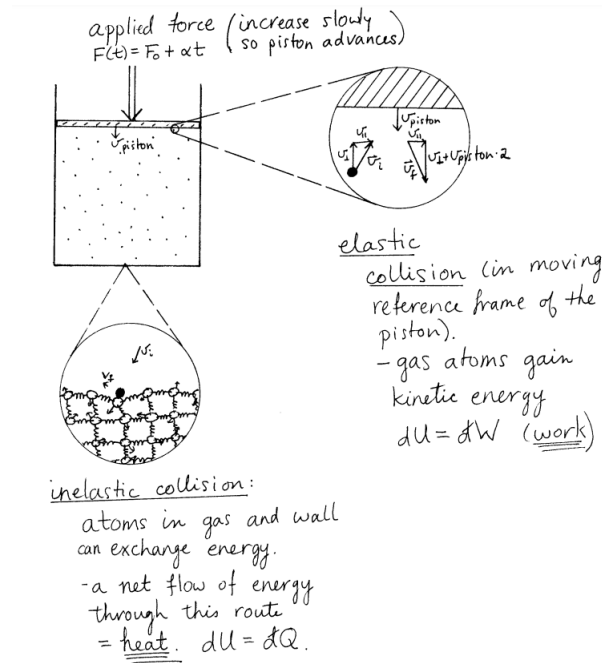 applied force (increase slowly
F(t) = F₀ + αt so piston advances)
v piston
v piston
v∥
v⊥
v⃗i
v∥
v⃗f
v⊥ + v piston · 2
elastic
collision (in moving
reference frame of the
piston).
- gas atoms gain
kinetic energy
dU = đW (work)
v⃗i
v⃗f
inelastic collision:
atoms in gas and wall
can exchange energy.
- a net flow of energy
through this route
= heat. dU = đQ.